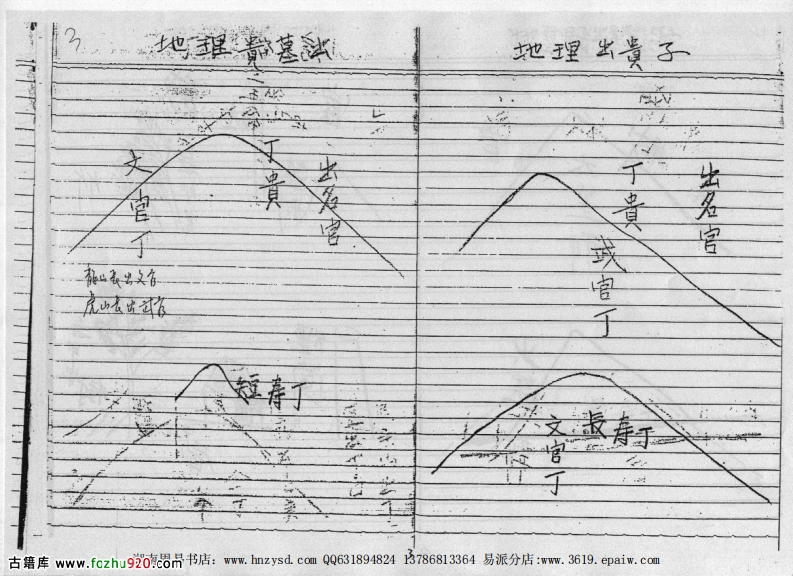 3
地理貴墓出
文官丁
丁貴
出名官
龍山長出文官
虎山長出武官
短寿丁
地理出貴子
丁貴
出名官
武官丁
文官丁
長寿丁
3
周易书店：www.hnzysd.com QQ631894824 13786813364 易派分店:www.3619.epaiw.com
古籍库 www.fczhu920.com